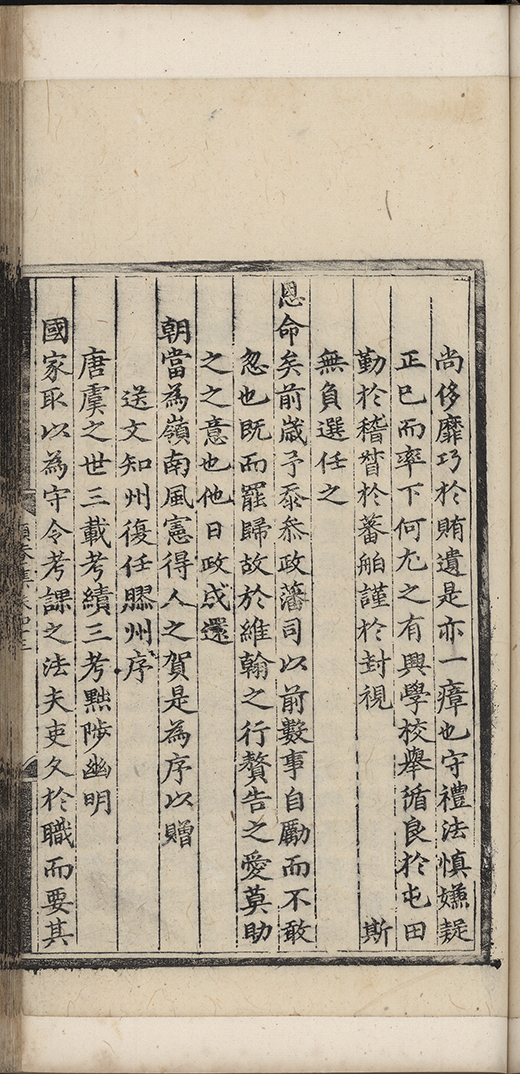 尚侈靡巧於賄遺是亦一瘴也守禮法慎嫌疑
正己而率下何尤之有興學校舉循良於屯田
勤於稽督於蕃舶謹於封視斯
無負選任之
恩命矣前歲予忝叅政藩司以前數事自勵而不敢
忽也既而罷歸故於維翰之行贅告之愛莫助
之之意也他日政成還
朝當為嶺南風憲得人之賀是為序以贈
送文知州復任膠州序
唐虞之世三載考績三考黜陟幽明
國家取以為守令考課之法夫吏久於職而要其